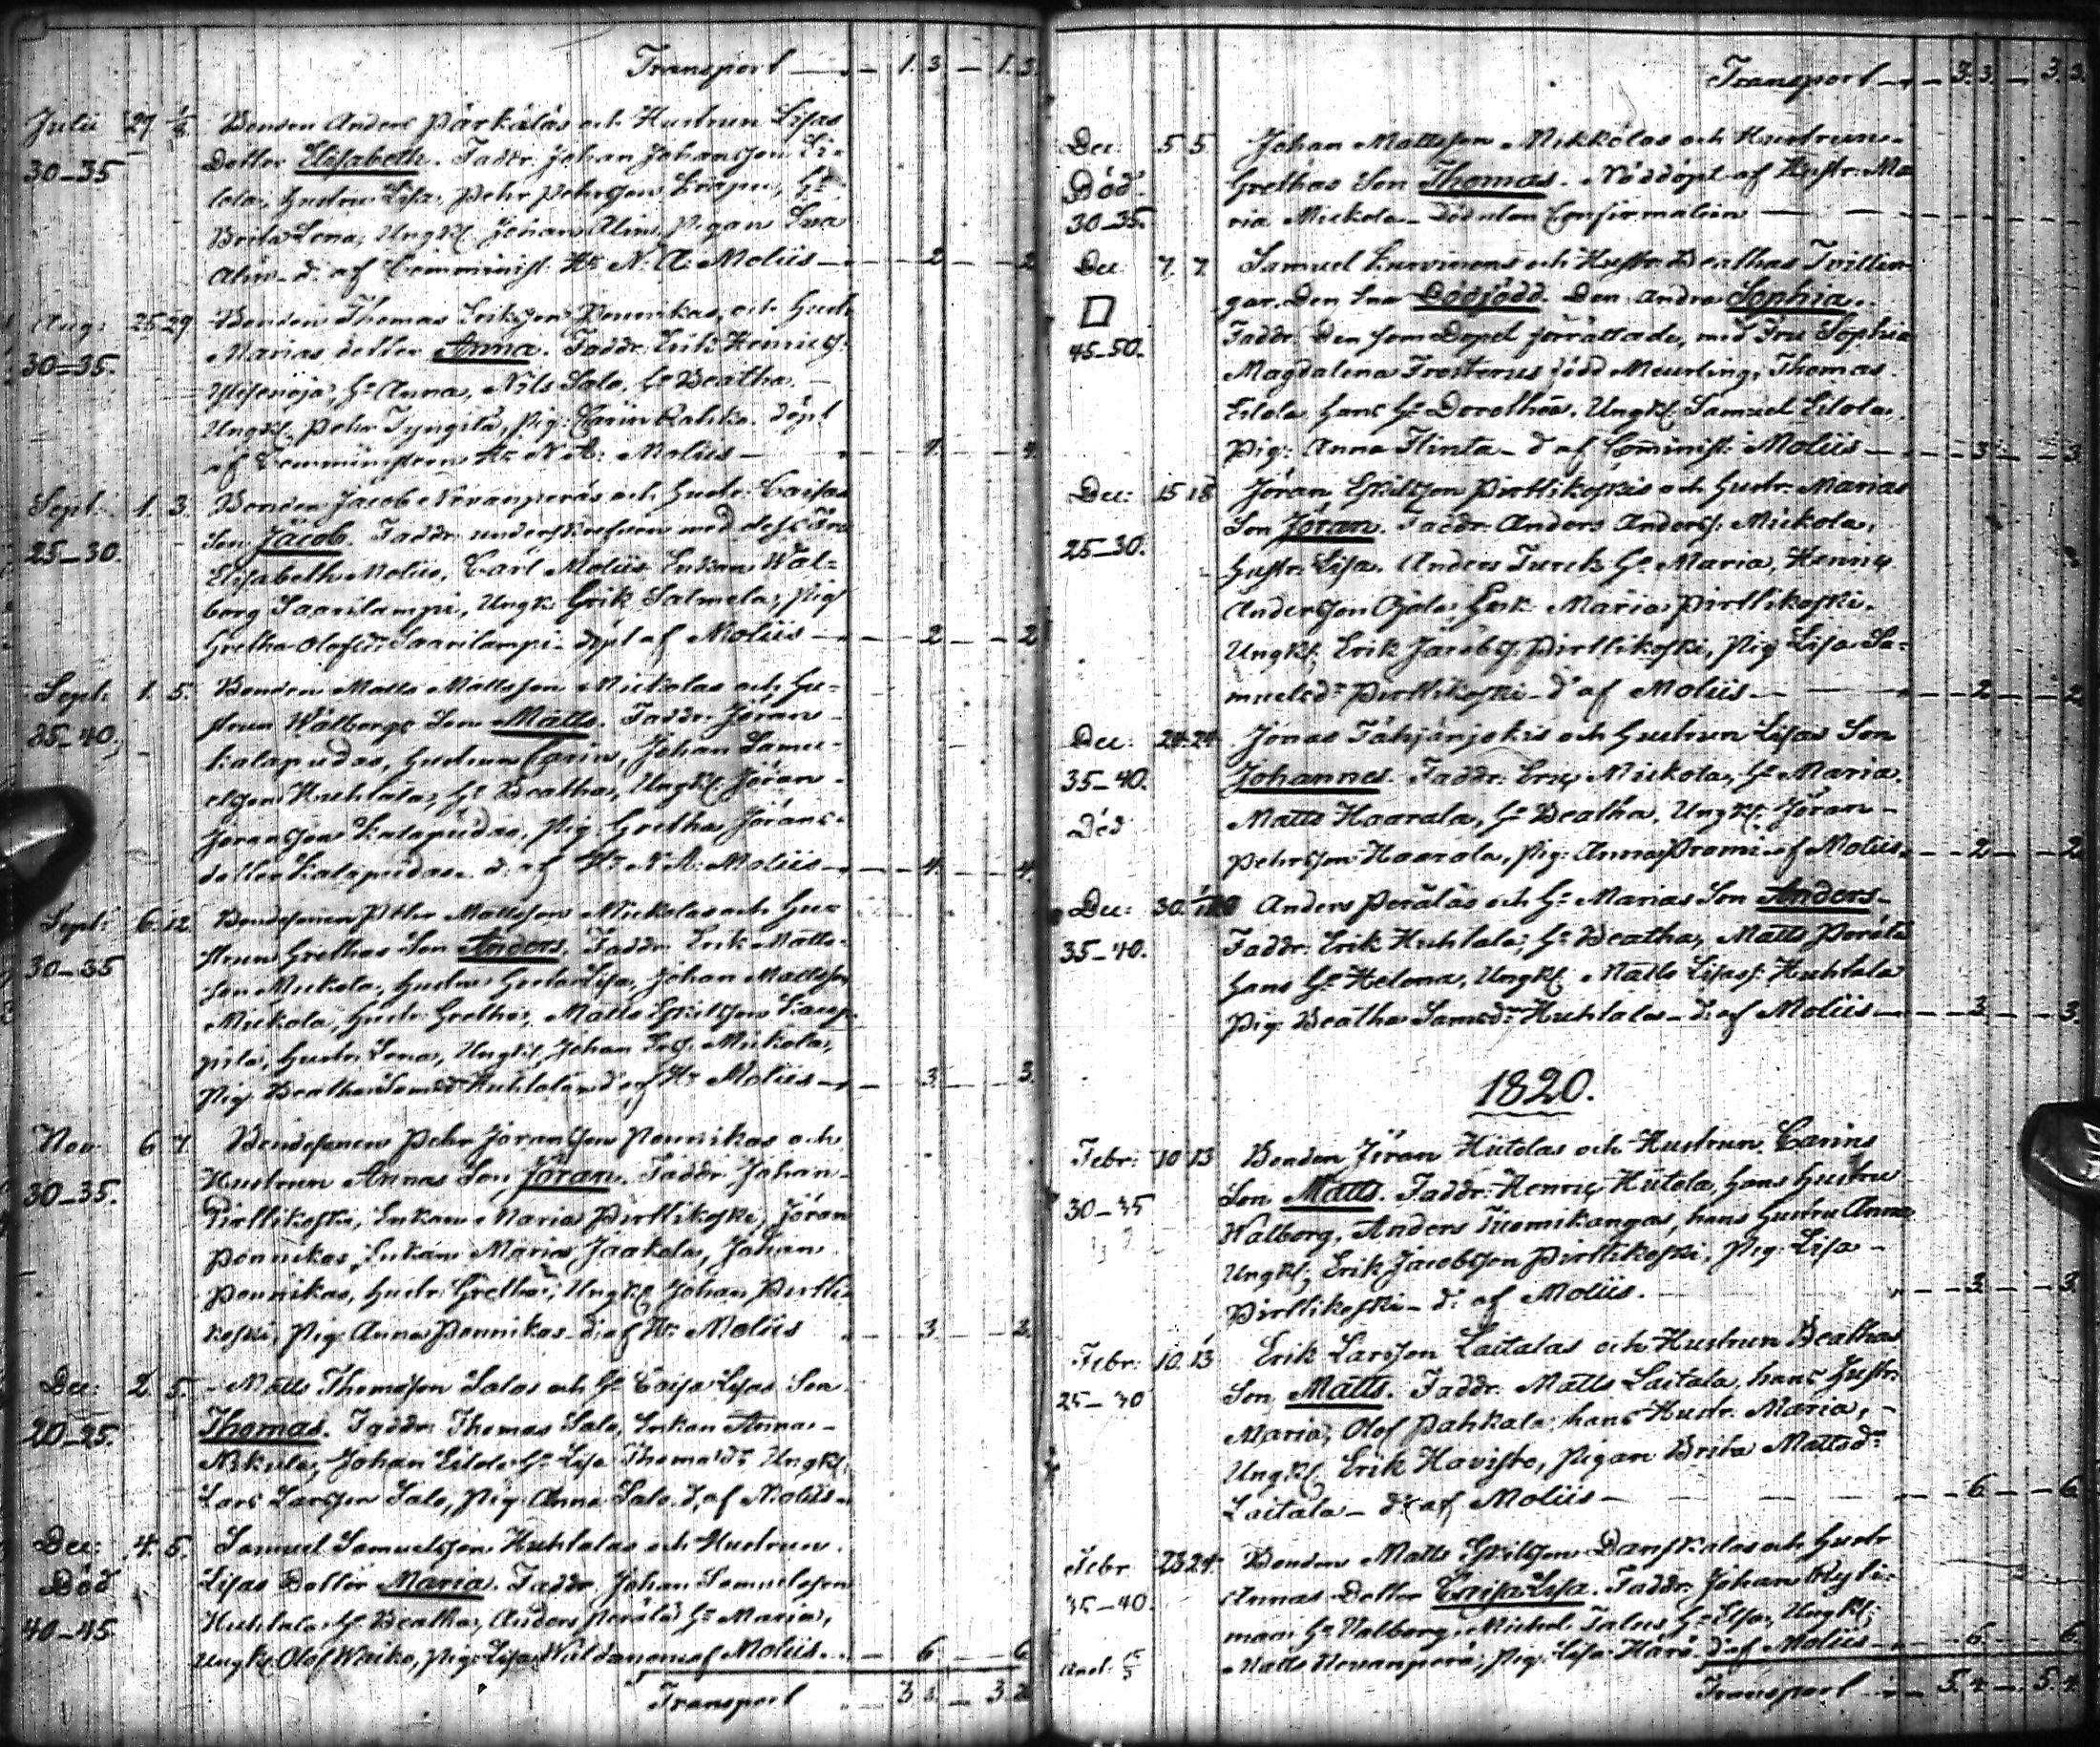 Transport — 1.3 — 1.3.
Julii 29 1/8 Bonden Anders Pärkäläs och Hustrun Lisas
30–35 Dotter Elisabeth. Faddr: Johan Johansson Ei-
lola, Hustru Lisa, Pehr Pehrsson
Brita Lena, Ungk: Johan Alin, Pigan Eva
Alin d: af Comminist: Hr N: A: Moliis — 2 — 2
Aug: 25 29 Bonden Thomas Eriksson Pennikas, och Hust:
30–35. Marias dotter Anna. Faddr: Erik Henrics:
Hr Anna, Nils Salo, Hr Beatha,
Ungk: Pehr Tyngilä, Pig: Carin Rahko. döpt
af Comministern Hr N A: Moliis — 4. — 4.
Sept: 1. 3. Bonden Jacob Nevanperäs och Hustr: Caisas
25–30. Son Jacob. Faddr: underskrefven med dess Fru
Elisabeth Moliis, Carl Moliis, Enkan Wal-
borg Saarilampi, Ungk: Erik Salmela, Pig:
Gretha Olofsdr Saarilampi – döpt af Moliis — 2 — 2
Sept: 1. 5. Bonden Matts Mattsson Mickolas och Hu-
35–40. strun Walborgs Son Matts. Faddr: Jöran
Kalapudas, Hustrun Carin, Johan Samu-
elsson Huhtala, Hr Beatha, Ungk: Jöran
Jöransson Kalapudas, Pig: Gretha Jörans-
dotter Kalapudas. d: af Hr N. A: Moliis — 4. — 4.
Sept: 6. 12. Bondesonen Pehr Mattsson Mickolas och Hu-
30–35 struns Grethas Son Anders. Faddr: Erik Matts-
son Mickola, Hustru Greta Lisa, Johan Mattsson
Mickola, Hustr: Gretha, Matts Eskilsson Kaup-
pila, Hustr: Lena, Ungk: Johan Mickola,
Pig: Beatha Samsdr Huhtala d: af Hr Moliis — 3. — 3.
Nov: 6 7. Bondesonen Pehr Jöransson Pennikas och
30–35. Hustrun Annas Son Jöran. Faddr: Johan
Pirttikoski, Enkan Maria Pirttikoski, Jöran
Pennikas, Enkan Maria Jaakola, Johan
Pennikas, Hustr: Gretha, Ungk: Johan Pirtti-
koski, Pig: Anna Pennikas d: af Hr Moliis — 3. — 3.
Dec: 2 5. Matts Thomasson Salos och Hr Caisa Lisas Son
20–25. Thomas. Faddr: Thomas Salo, Enkan Anna
Nikula, Johan Eilola Hr Lisa Thomasdr Ungk:
Lars Larsson Salo, Pig: Anna Salo. d, af Moliis
Dec: 4. 5. Samuel Samuelsson Huhtalas och Hustrun
Död Lisas Dotter Maria. Faddr: Johan Samuelsson
40–45 Huhtala Hr Beatha, Anders Perälä Hr Maria,
Ungk: Olof Waiko, Pig: Lisa af Moliis — 6 — 6
Transport — 3 — 3
Transport — 3.3. — 3.3.
Dec: 5 5. Johan Mattsson Mikkolas och Hustruns
Död. Grethas Son Thomas. Nöddöpt af Hustr: Ma
30–35. ria Mickola – död utan Confirmation —
Dec: 7. 7. Samuel och Hustr: Beathas Tvillin-
gar. Den Ena Dödfödd. Den Andra Sophia.
45–50. Faddr: Den som Dopet förrättade, med Fru Sophia
Magdalena Frosterus född Meurling, Thomas
Eilola, hans Hr Dorothea. Ungk: Samuel Eilola,
Pig: Anna Hinta – d af Cominist: Moliis — 3 — 3
Dec: 15 18 Jöran Eskilsson Pirttikoskis och Hustr: Marias
25–30. Son Jöran. Faddr: Anders Anderss: Mickola,
Hustr: Lisa. Anders Turck Hr Maria, Henric
Andersson Ojala, Enk: Maria Pirttikoski.
Ungk: Erik Jacobss: Pirttikoski, Pig: Lisa Sa-
muelsdr Pirttikoski – d af Moliis — 2 — 2
Dec: 24. 24. Jonas Tähjänjokis och Hustrun Lisas Son
35–40. Johannes. Faddr: Eric Mickola, Hr Maria,
Död Matts Haarala, Hr Beatha, Ungk: Jöran
Pehrsson Haarala, Pig: Anna af Moliis. — 2 — 2
Dec: 30. Anders Peräläs och Hr Marias Son Anders.
35–40. Faddr: Erik Huhtala, Hr Beatha, Matts Perälä
hans Hr Helena, Ungk: Matts Huhtala
Pig: Beatha Samsdr Huhtala – d: af Moliis — 3 — 3.
1820.
Febr: 10 13 Bonden Jöran Hiitolas och Hustrun Carins
30–35 Son Matts. Faddr: Henric Hiitola, hans Hustru
Walborg, Anders Tuomikangas, hans Hustru Anna
Ungk: Erik Jacobsson Pirttikoski, Pig: Lisa
Pirttikoski – d: af Moliis. — 3 — 3
Febr: 10. 13 Erik Larsson Laitalas och Hustrun Beathas
25–30 Son Matts. Faddr: Matts Laitala, hans Hustr:
Maria, Olof Pahkala, hans Hustr: Maria,
Ungk: Erik Havisto, Pigan Brita Mattsdr
Laitala – d: af Moliis — 6 — 6
Febr 23 24. Bonden Matts Eskilsson Danskalas och Hustr
35–40. Annas Dotter Caisa Lisa. Faddr: Johan Ryti-
maa Hr Valborg, Michel Talus Hr Lisa, Ungk:
Matts Nevanperä, Pig: Lisa Harå. d: af Moliis — 6 — 6
Transport — 5.4. — 5.4